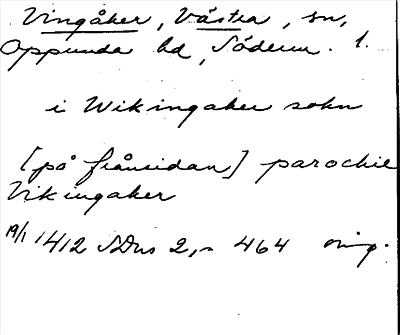 Vingåker, Västra, sn,
Oppunda hd, Söderm. 1.
i Wikingaker sokn
[på frånsidan] parochie
Vikingaker
19/1 1412 SDns 2, s 464 orig.